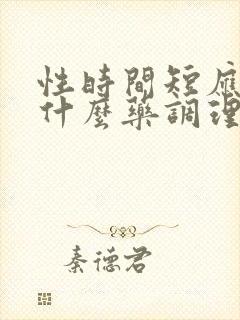 性時間短應
什麼藥調理
秦德君